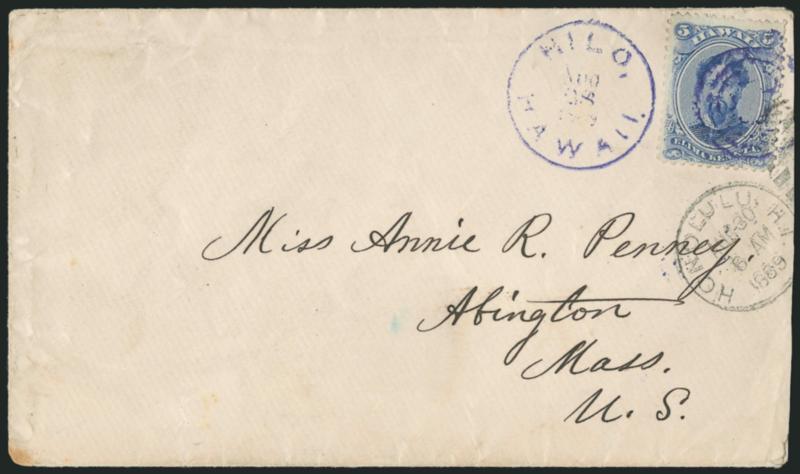 HILO,
AUG
HAWAII.
5 HAWAII 5
ELIMA KENETA
HONOLULU, H.I.
30
6 AM
1889
Miss Annie R. Penney,
Abington
Mass.
U. S.